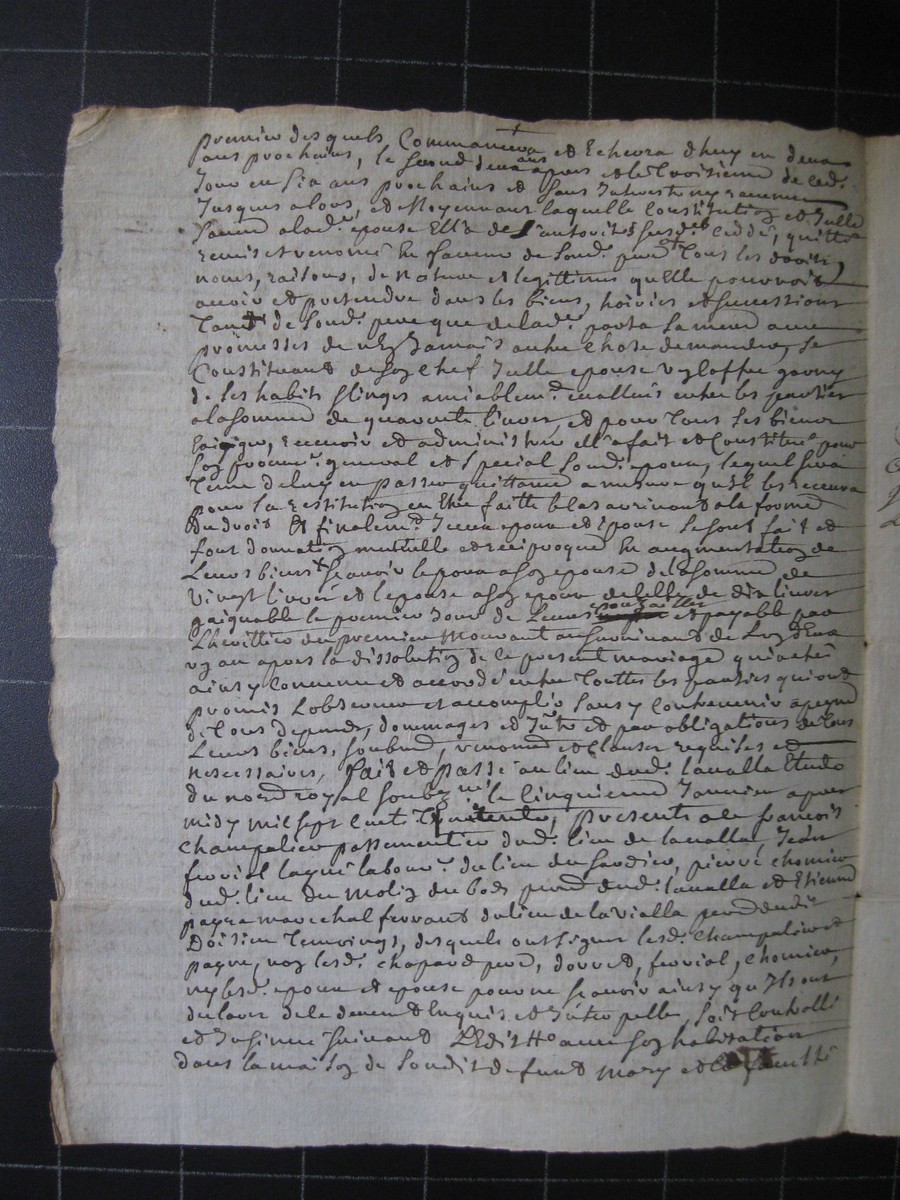 premier desquels Commancera et Echerra d'huy en deux
ans prochains, le second deux ans apres et le troisieme de led.
Jour en six ans prochains et sans Interest ny
Jusques alors, et Moyennant laquelle Constitution et
a lad. epouse Ella de l'autorité susd. ceddé, quitté
remis et renoncé En faveur de soud. pere tous les droits,
noms, raisons, de nature et legittime quelle pourroit
avoir et pretendre dans les biens, hoiries et successions
tant de soud. pere que de lad. sa mere avec
promesses de n'en Jamais autre chose demander, se
Constituant de son chef Icelle epouse un coffre garny
de ses habits & linges amiablem. evallués entre les parties
a la somme de quarante livres, et pour tous ses biens
Exiger, recevoir et administrer ell'a fait et Constitué pour
son procur. general et special soud. epoux, lequel sera
tenu de luy en passer quittance a mesure qu'il les recevra
pour la restitution en Etre faitte le cas arrivant a la forme
du droit Et finalem. Iceux epoux et epouse se sont fait et
font donnation mutuelle et reciproque En augmentation de
Leurs biens scavoir lepoux a son epouse de la somme de
vingt livres et lepouse a son epoux de celle de dix livres
gaignable le premier Jour de Leurs et payable par
Lheritier du premier mourant au survivant de
un an apres la dissolution de ce present mariage qui a été
ainsy Convenu et accordé entre Touttes les parties qui ont
promis Lobserver et accomplir sans y Contrevenir a peyne
de Tous depens, dommages et Inte. et par obligations de tous
Leurs biens, soubm., renonce. et clauses requises et
necessaires, fait et passé au lieu dud. Lavalla Etude
du no.re royal soubz.né le Cinquieme Janvier apres
midy mil sept cents Trente, presents a ce francois
Champalier passementier dud. lieu de lavalla, Jean
ferrial labour. du lieu du pierre chomier
dud. lieu du Molin du bost pere dud. lavalla et Etienne
payre marechal ferrant du lieu de lavialla
Doisieu Temoings, desquels ont signer lesd. Champalier et
payre, non lesd. chapard pere, ferrial, chomier,
ny lesd. epoux et epouse pour ne scavoir ainsy qu'ils ont
declaré de ce deument Enquis et Interpellé, soit Controllé
et Insinué suivant LEdit avec son habitation
dans la maison de soudit defunt mary et